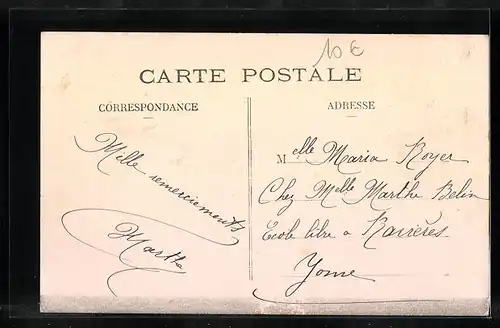 10 €
CARTE POSTALE
CORRESPONDANCE
ADRESSE
Mille remerciements
Marthe
Melle Maria Royer
Chez Melle Marthe Belin
Ecole libre a Ravières
Yonne